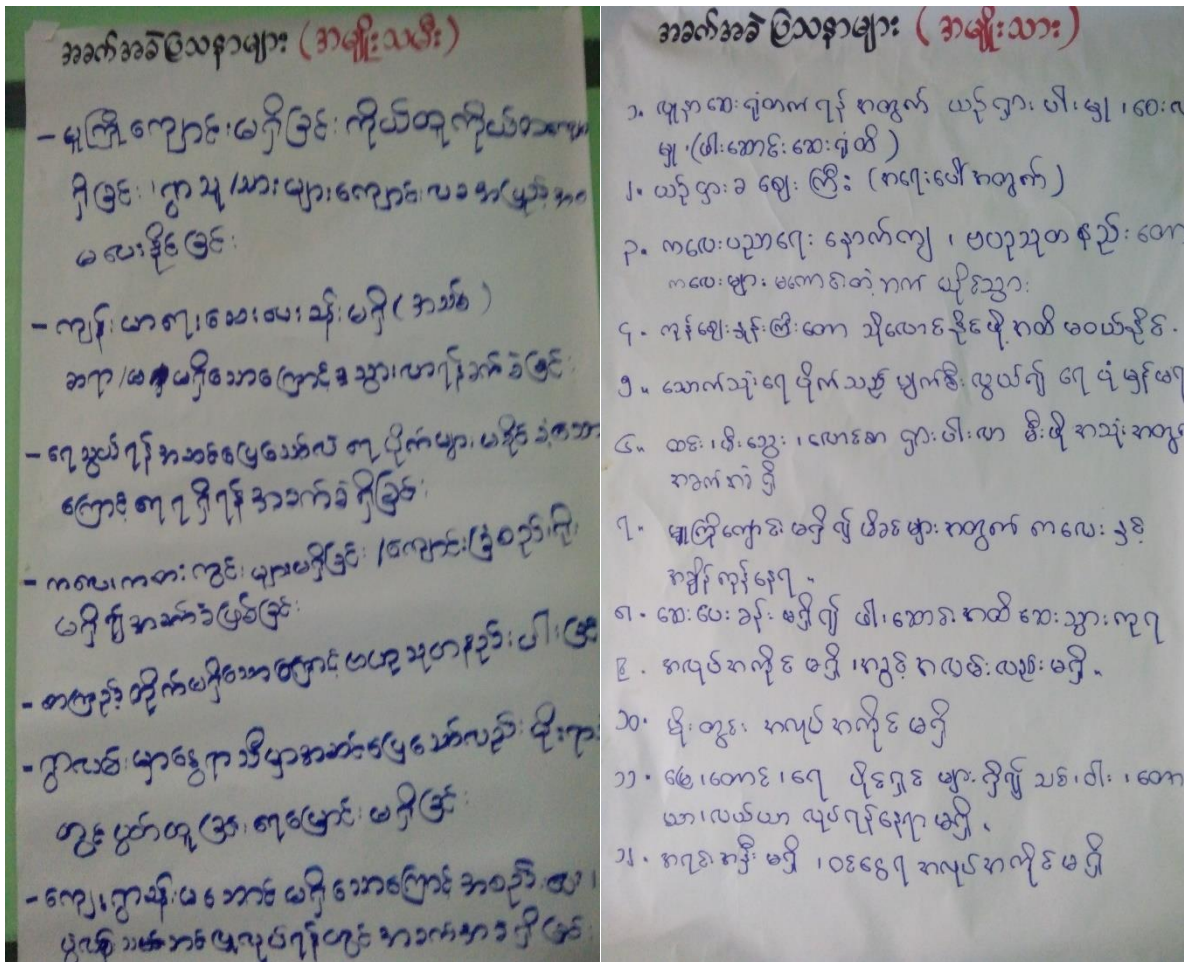 အခက်အခဲပြဿနာများ (အမျိုးသမီး)
- မူကြိုကျောင်းမရှိခြင်း ကိုယ်ထူကိုယ်ထ
ရှိခြင်း၊ ရွာသူ/သားများကျောင်းလခအပြည့်အဝ
မပေးနိုင်ခြင်း
- ကျန်းမာရေးဆေးပေးခန်းမရှိ (အသစ်)
ဆရာ/မ မရှိသောကြောင့် သွားလာရန်ခက်ခဲခြင်း
- ရေသွယ်ရန်အဆင်ပြေသော်လဲ ရေပိုက်များ မခိုင်ခံ့သော
ကြောင့်ရေရရှိရန်အခက်ခဲရှိခြင်း
- ကလေးကစားကွင်းများမရှိခြင်း /ကျောင်းခြံစည်းရိုး
မရှိ၍အခက်ခဲဖြစ်ခြင်း
- စာကြည့်တိုက်မရှိသောကြောင့် ဗဟုသုတနည်းပါးခြင်း
- ရွာလမ်းမှာနွေရာသီမှာအဆင်ပြေသော်လည်း မိုးရာ
တွင်ဗွက်ထူခြင်း ရေမြောင်းမရှိခြင်း
- ကျေးရွာခန်းမဆောင်မရှိသောကြောင့် အစည်းအဝေး၊
ပွဲလမ်းသဘင်များလုပ်ရန်တွင်အခက်အခဲရှိခြင်း
အခက်အခဲပြဿနာများ (အမျိုးသား)
၁. လူနာဆေးရုံတက်ရန်အတွက် ယာဉ်ရှားပါးမှု၊ ဝေးလံ
မှု (ဖါးဆောင်းဆေးရုံထိ)
၂. ယာဉ်ငှားခဈေးကြီး (အရေးပေါ်အတွက်)
၃. ကလေးပညာရေးနောက်ကျ၊ ဗဟုသုတနည်းတော့
ကလေးများ မကောင်းတဲ့ဘက် ယိုင်သွား
၄. ကုန်ဈေးနှုန်းကြီးတော့ သိုလှောင်နိုင်ဖို့အထိ မဝယ်နိုင်.
၅. သောက်သုံးရေပိုက်သည် ပျက်စီးလွယ်၍ ရေပုံမှန်မရ
၆. ထင်း၊ မီးသွေး၊ လောင်စာ ရှားပါးလာ မီးဖိုအသုံးအတွက်
အခက်အခဲရှိ
၇. မူကြိုကျောင်းမရှိ၍ မိခင်များအတွက် ကလေးနှင့်
အချိန်ကုန်နေရ.
၈. ဆေးပေးခန်းမရှိ၍ ဖါးဆောင်းအထိ ဆေးသွားကုရ
၉. အလုပ်အကိုင်မရှိ၊ အခွင့်အလမ်းလည်းမရှိ.
၁၀. မိုးတွင်း အလုပ်အကိုင်မရှိ
၁၁. မြေ၊ တောင်၊ ရေ ပိုင်ရှင်များရှိ၍ သစ်၊ ဝါး၊ တော
ယာ၊ လယ်ယာ လုပ်ရန်နေရာမရှိ.
၁၂. အရင်းအနှီးမရှိ၊ ဝင်ငွေရအလုပ်အကိုင်မရှိ